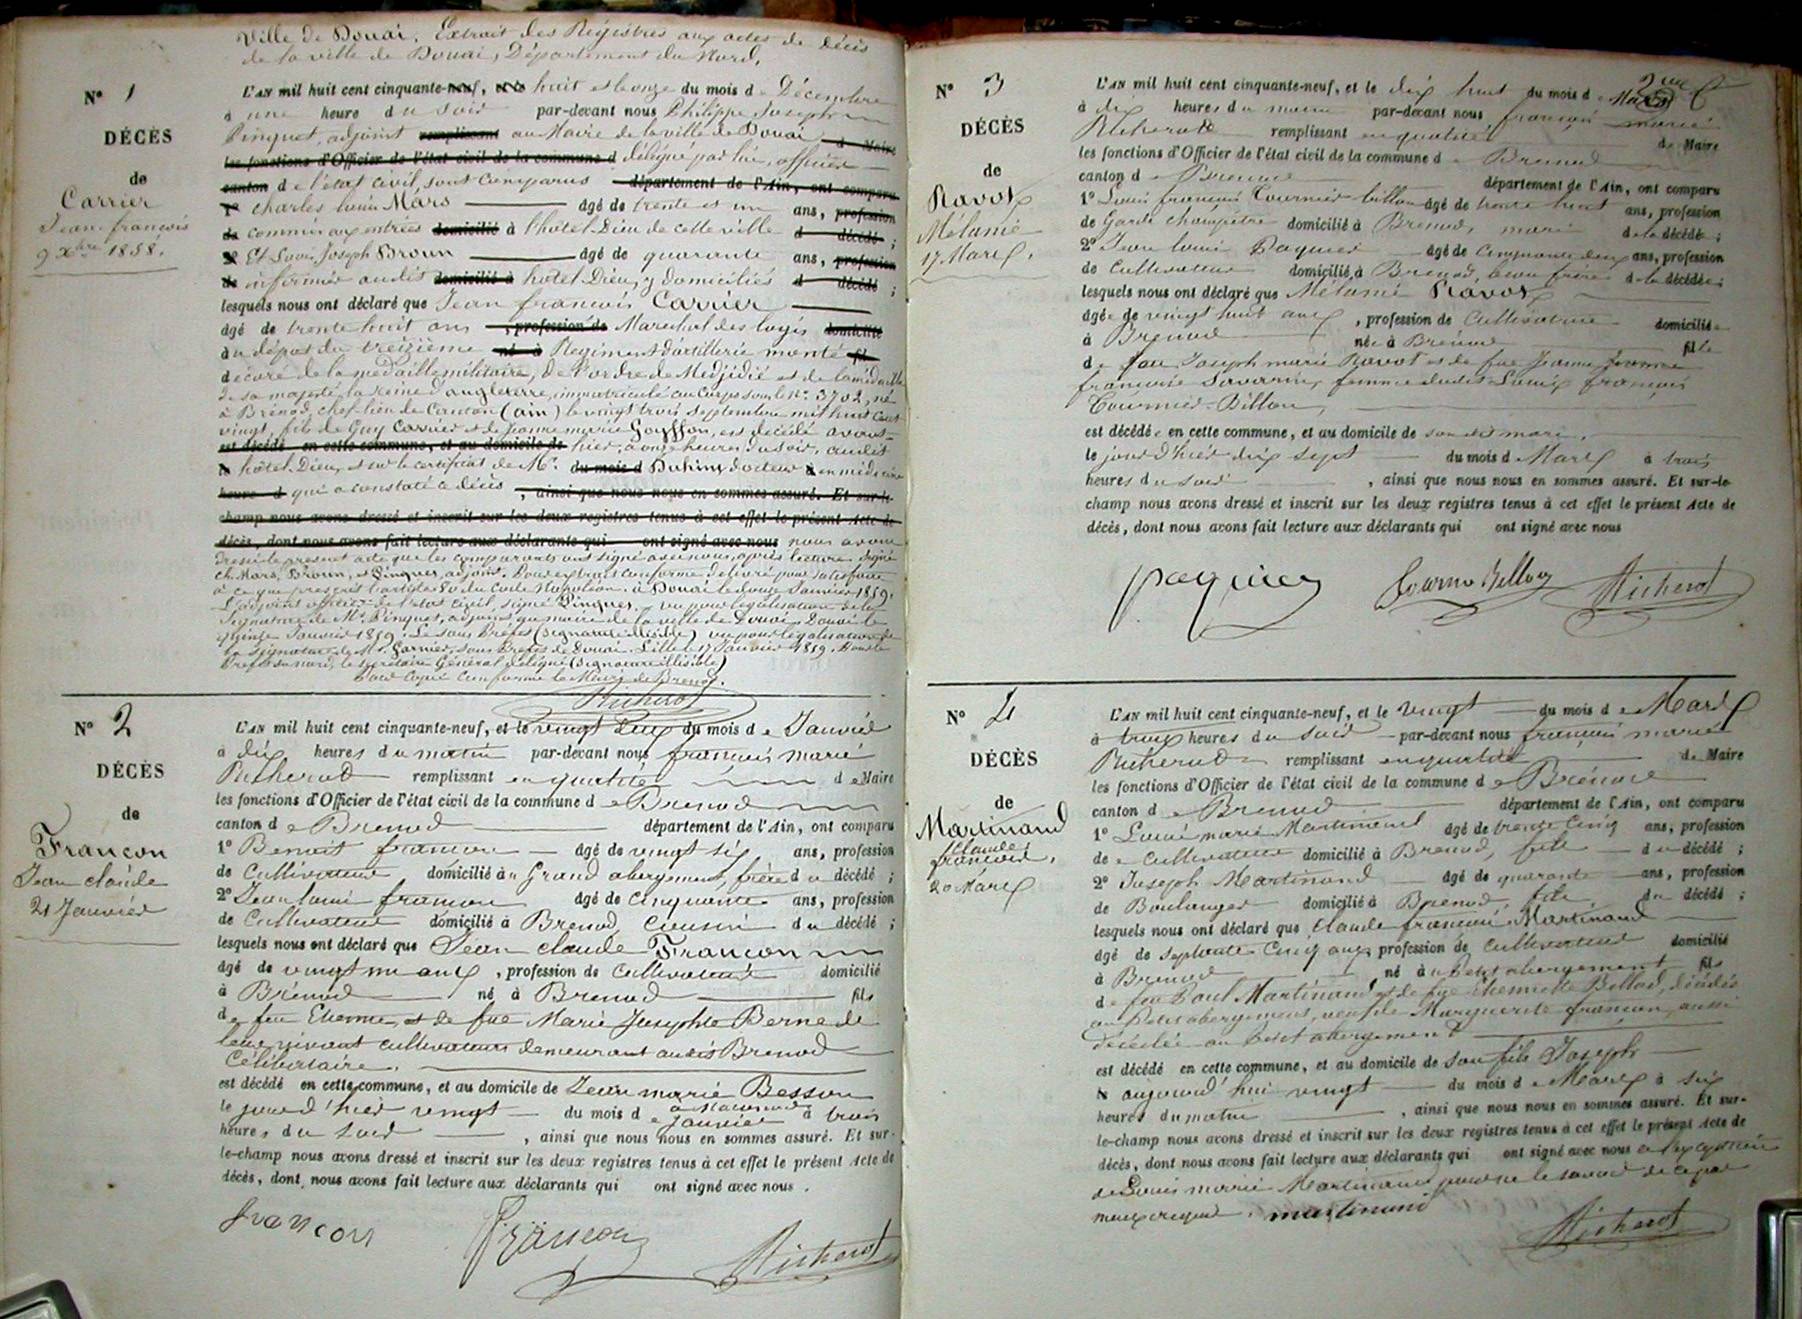 Ville de Douai. Extrait des Registres aux actes de décès
de la ville de Douai, Département du Nord.
N° 1
DÉCÈS
de
Carrier
Jean françois
9 Xbre 1858.
L'AN mil huit cent cinquante-neuf, huit et le onze du mois de Décembre
à une heure du soir par-devant nous Philippe Joseph
Pinquet, adjoint remplissant au Maire de la ville de Douai d Maire
les fonctions d'Officier de l'état civil de la commune d délégué par lui, officier
canton d de l'état civil, sont comparus département de l'Ain, ont comparu
1° charles louis Mars âgé de trente et un ans, profession
de commis aux entrées domicilié à l'hôtel-Dieu de cette ville d décédé ;
2° Et Louis Joseph Broun âgé de quarante ans, profession
de infirmier audit domicilié à hôtel Dieu, y domiciliés d décédé ;
lesquels nous ont déclaré que Jean françois Carrier
âgé de trente huit ans , profession de Marechal des logis domicilié
au dépôt du treizième né à Regiment d'artillerie monté fil
décoré de la médaille militaire, de l'ordre de Medjidié et de la médaille
de sa majesté la Reine d'angleterre, immatriculé au Corps sous le N° 3702, né
à Brénod, chef-lieu de Canton (ain) le vingt trois Septembre mil huit cent
vingt, fils de Guy Carrier et de Jeanne marie Gouffon, est décédé avant-
est décédé en cette commune, et au domicile de hier, à onze heures du soir, audit
le hôtel-Dieu, et sur le certificat de Mr. du mois d Duhin, docteur à en médecine
heure d qui a constaté ce décès , ainsi que nous nous en sommes assuré. Et sur-le-
champ nous avons dressé et inscrit sur les deux registres tenus à cet effet le présent Acte de
décès, dont nous avons fait lecture aux déclarants qui ont signé avec nous nous avons
dressé le present acte que les comparants ont signé avec nous, après lecture. Signé
ch. Mars, Broun, et Pinquet, adjoint. Pour extrait conforme délivré pour satisfaire
à ce que prescrit l'article 80 du Code Napoléon. à Douai le douze Janvier 1859.
L'adjoint officier de l'état civil, signé Pinquet. Vu pour légalisation de la
Signature de Mr. Pinquet, adjoint au maire de la ville de Douai. Douai le
quinze Janvier 1859. Le Sous Préfet (signature illisible) vu pour légalisation de
la Signature de Mr. Garnier, Sous Préfet de Douai. Lille le 17 Janvier 1859. Pour le
Préfet du nord, le secrétaire Général délégué (signature illisible)
Pour Copie Conforme le Maire de Brenod.
Richerot
N° 2
DÉCÈS
de
Françon
Jean claude
21 Janvier
L'AN mil huit cent cinquante-neuf, et le vingt deux du mois de Janvier
à dix heures du matin par-devant nous françois marie
Richerot remplissant en qualité de Maire
les fonctions d'Officier de l'état civil de la commune de Brenod
canton de Brenod département de l'Ain, ont comparu
1° Benoit françon âgé de vingt six ans, profession
de Cultivateur domicilié à Grand abergement, frère du décédé ;
2° Jean louis françon âgé de cinquante ans, profession
de Cultivateur domicilié à Brenod, Cousin du décédé ;
lesquels nous ont déclaré que Jean claude Françon
âgé de vingt un ans , profession de Cultivateur domicilié
à Brénod né à Brenod fils
de feu Etienne, et de fue Marie Josephte Berne de
leur vivant cultivateurs demeurant audit Brenod
Célibataire.
est décédé en cette commune, et au domicile de Jean marie Besson
à Macconod
le jour d'hier vingt du mois de Janvier à trois
heures du soir , ainsi que nous nous en sommes assuré. Et sur-
le-champ nous avons dressé et inscrit sur les deux registres tenus à cet effet le présent Acte de
décès, dont nous avons fait lecture aux déclarants qui ont signé avec nous.
françon Françon Richerot
N° 3
DÉCÈS
de
Ravot
Mélanie
17 Mars.
2me
L'AN mil huit cent cinquante-neuf, et le dix huit du mois de Mars
à dix heures du matin par-devant nous françois marie
Richerot remplissant en qualité de Maire
les fonctions d'Officier de l'état civil de la commune de Brenod
canton de Brenod département de l'Ain, ont comparu
1° Louis françois Tournier billon âgé de trente huit ans, profession
de Garde champêtre domicilié à Brenod, mari de la décédée ;
2° Jean louis Paquier âgé de Cinquante deux ans, profession
de Cultivateur domicilié à Brenod, beau frère de la décédée ;
lesquels nous ont déclaré que Mélanie Ravot
âgée de vingt huit ans , profession de Cultivatrice domiciliée
à Brenod née à Brenod fille
de feu Joseph marie Ravot et de fue Jeanne
françoise Savarin, femme dudit Louis françois
Tournier-Billon,
est décédée en cette commune, et au domicile de son dit mari,
le jour d'hier dix sept du mois de Mars à trois
heures du soir , ainsi que nous nous en sommes assuré. Et sur-le-
champ nous avons dressé et inscrit sur les deux registres tenus à cet effet le présent Acte de
décès, dont nous avons fait lecture aux déclarants qui ont signé avec nous
paquier Tournier Billon Richerot
N° 4
DÉCÈS
de
Martinand
Claude
françois,
20 Mars
L'AN mil huit cent cinquante-neuf, et le vingt du mois de Mars
à trois heures du soir par-devant nous françois marie
Richerot remplissant en qualité de Maire
les fonctions d'Officier de l'état civil de la commune de Brénod
canton de Brenod département de l'Ain, ont comparu
1° Louis marie Martinand âgé de trente cinq ans, profession
de cultivateur domicilié à Brenod, fils du décédé ;
2° Joseph Martinand âgé de quarante ans, profession
de Boulanger domicilié à Brenod, fils du décédé ;
lesquels nous ont déclaré que Claude françois Martinand
âgé de septante Cinq ans, profession de cultivateur domicilié
à Brenod , né à Petit abergement fils
de feu Paul Martinand et de fue Etiennette Billod, décédés
au Petit abergement, veuf de Marguerite françon, aussi
décédée au Petit abergement
est décédé en cette commune, et au domicile de son fils Joseph
le aujourd'hui vingt du mois de Mars à six
heures du matin , ainsi que nous nous en sommes assuré. Et sur-
le-champ nous avons dressé et inscrit sur les deux registres tenus à cet effet le présent Acte de
décès, dont nous avons fait lecture aux déclarants qui ont signé avec nous à l'exception
de Louis marie Martinand pour ne le savoir de ce par
nous requis. martinand
Richerot